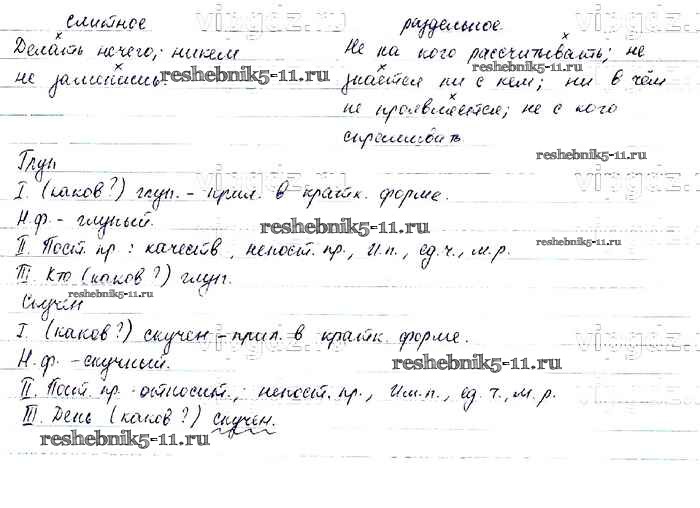 слитное раздельное.
Делать нечего; никем Не на кого рассчитывать; не
не заменишь. знается ни с кем; ни в чём
не проявляется; не с кого
спрашивать.
Глуп
I. (каков?) глуп. - прил. в кратк. форме.
Н.ф. - глупый.
II. Пост. пр: качеств, непост. пр., И.п., ед.ч., м.р.
III. Кто (каков?) глуп.
Скучен
I. (каков?) скучен - прил. в кратк. форме.
Н.ф. - скучный.
II. Пост. пр. - относит.; непост. пр., Им.п., ед.ч., м.р.
III. День (каков?) скучен.
reshebnik5-11.ru
reshebnik5-11.ru
reshebnik5-11.ru
reshebnik5-11.ru
reshebnik5-11.ru
reshebnik5-11.ru
reshebnik5-11.ru